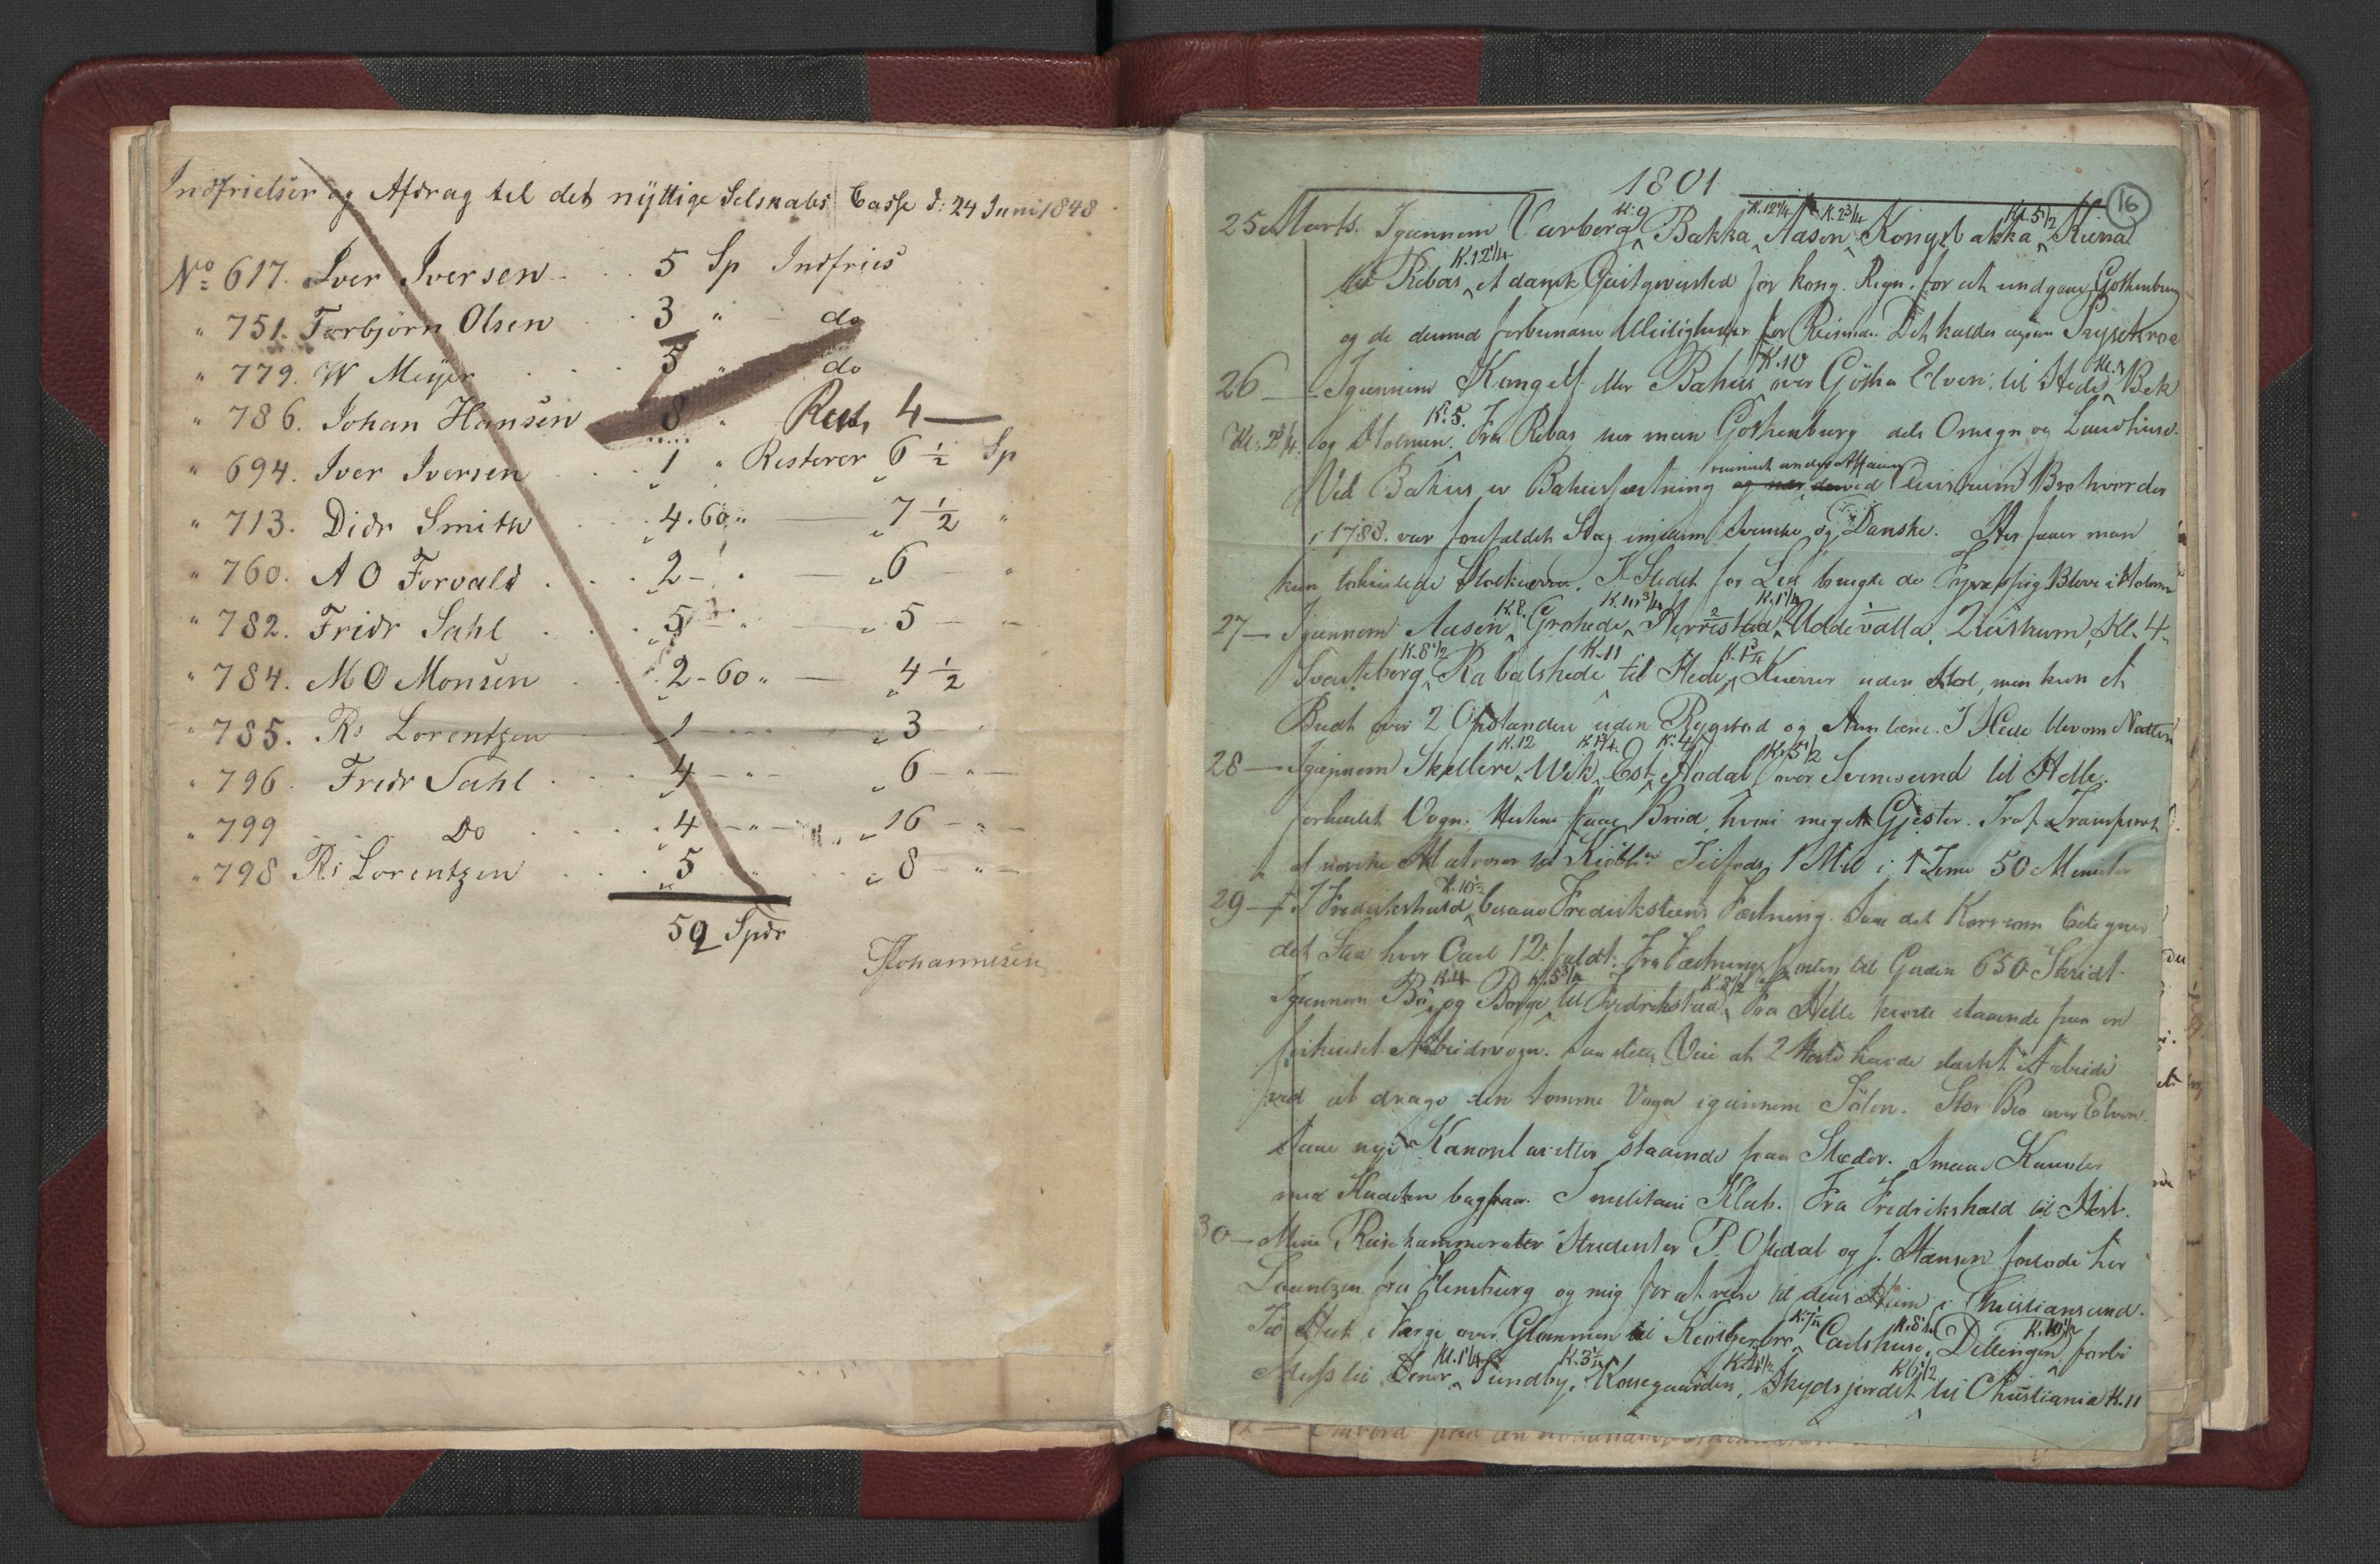 Indfrielser og Afdrag til det nyttige Selskabs Casse d: 24 Juni 1848
No 617. Iver Iversen 5 Sp Indfries
" 751. Torbjörn Olsen 3 " do
" 779. W Meyer 5 " do
" 786. Johan Hansen 8 " Rest, 4 —
" 694. Iver Iversen 1 " Resterer 6 ½ Sp
" 713. Didr Smith 4.60 " — " 7 ½ "
" 760. A O Forvald 2 - " — " 6 — "
" 782. Fridr Sahl 5 - " — " 5 — "
" 784. M O Monsen 2-60 " — " 4 ½
" 785. Rs Lorentzen 1 - " - " 3 - "
" 796. Fridr Sahl 4 - " - " 6 - " -
" 799 Do 4 - " - " 16 - " -
" 798 Rs Lorentzen 5 " 8 - " -
59 Spdr
Johannesen
1801
16
25 Marts. Igiennem Varberg K. 9 Bakka K. 12¼ Aasen K. 2¾ Kongsbakka Kl. 5½
til Rebas K. 12¼ et dansk Giestgiversted for kong. Regn. for at undgaae Gothenburg
og de dermed forbundne Uleiligheder for Reisende. Det kaldes
26 — Igiennem Kongelf eller Bahus K. 10 over Götha Elven, til Hede Bek
Kl. 2¼ og Holmen K. 5. Fra Rebas seer man Gothenburg dets Omegn og Landhuse.
Ved Bahus er Bahusfæstning Bro hvor der
i 1788. var forefaldet Slag imellem Svenske og Danske. Her faaer man
kun tohiulede I Stedet for
27 — Igiennem Aasen K. 8. Grohede K. 10¾ Herrestad K. 1¼ Uddevalla, Qvistrum, Kl. 4
Svarteborg K. 8½ Rabalshede K. 11 til Hede Kierrer uden Stol, men kun et
Bredt over 2 Opstandere uden Rygstød og Armlæne. I Hede blev om Natten
28 — Igiennem Skellere K. 12 Wik K. 1¾ Est K. 4 Hodal K. 5½ over Svinesund til Helle.
firhiulet Vogn. Hestene faae Brød, hvori meget Gjester. Traf Transport
af norske Matroser til Kiöbh. 1 Mil i 1 Time 50 Minuter
29 — I Fredrikshald K. 10½ besaae Fredriksteens Fæstning. Saae det Kors som betegner
det Sted hvor Carl 12. faldt. Fra Fæstnings til Gaden 650 Skridt.
Igiennem Bö K. 4 og Borge K. 5¾ til Fredrikstad K. 8½ Fra Helle kiørte staaende paa en
firhiulet Arbeidsvogn. Saa slem Veie at 2 Heste havde stærkt Arbeide
ved at drage den tomme Vogn igiennem Sölen. Stor Bro over Elven.
Saae nye Kanonlavetter staaende paa Slæder. Smaae Kanoner
med bagpaa. I militair Klub. Fra Fredrikshald til Hest.
30 — Mine Reisekammerater Studenter P. Opedal og J. Hansen forlode her
Lorentzen fra Flensburg og mig for at reise til deres Hiem i Christiansund.
Til Hest i Færge over Glommen til Kiölbergbro K. 7½ Carlshuse K. 8½ Dillingen K. 10½ forbi
Moss til Soner Kl. 1¼ Sundby K. 3½ Korsegaarden, Skydsjordet K. 6½ til Christiania K. 11